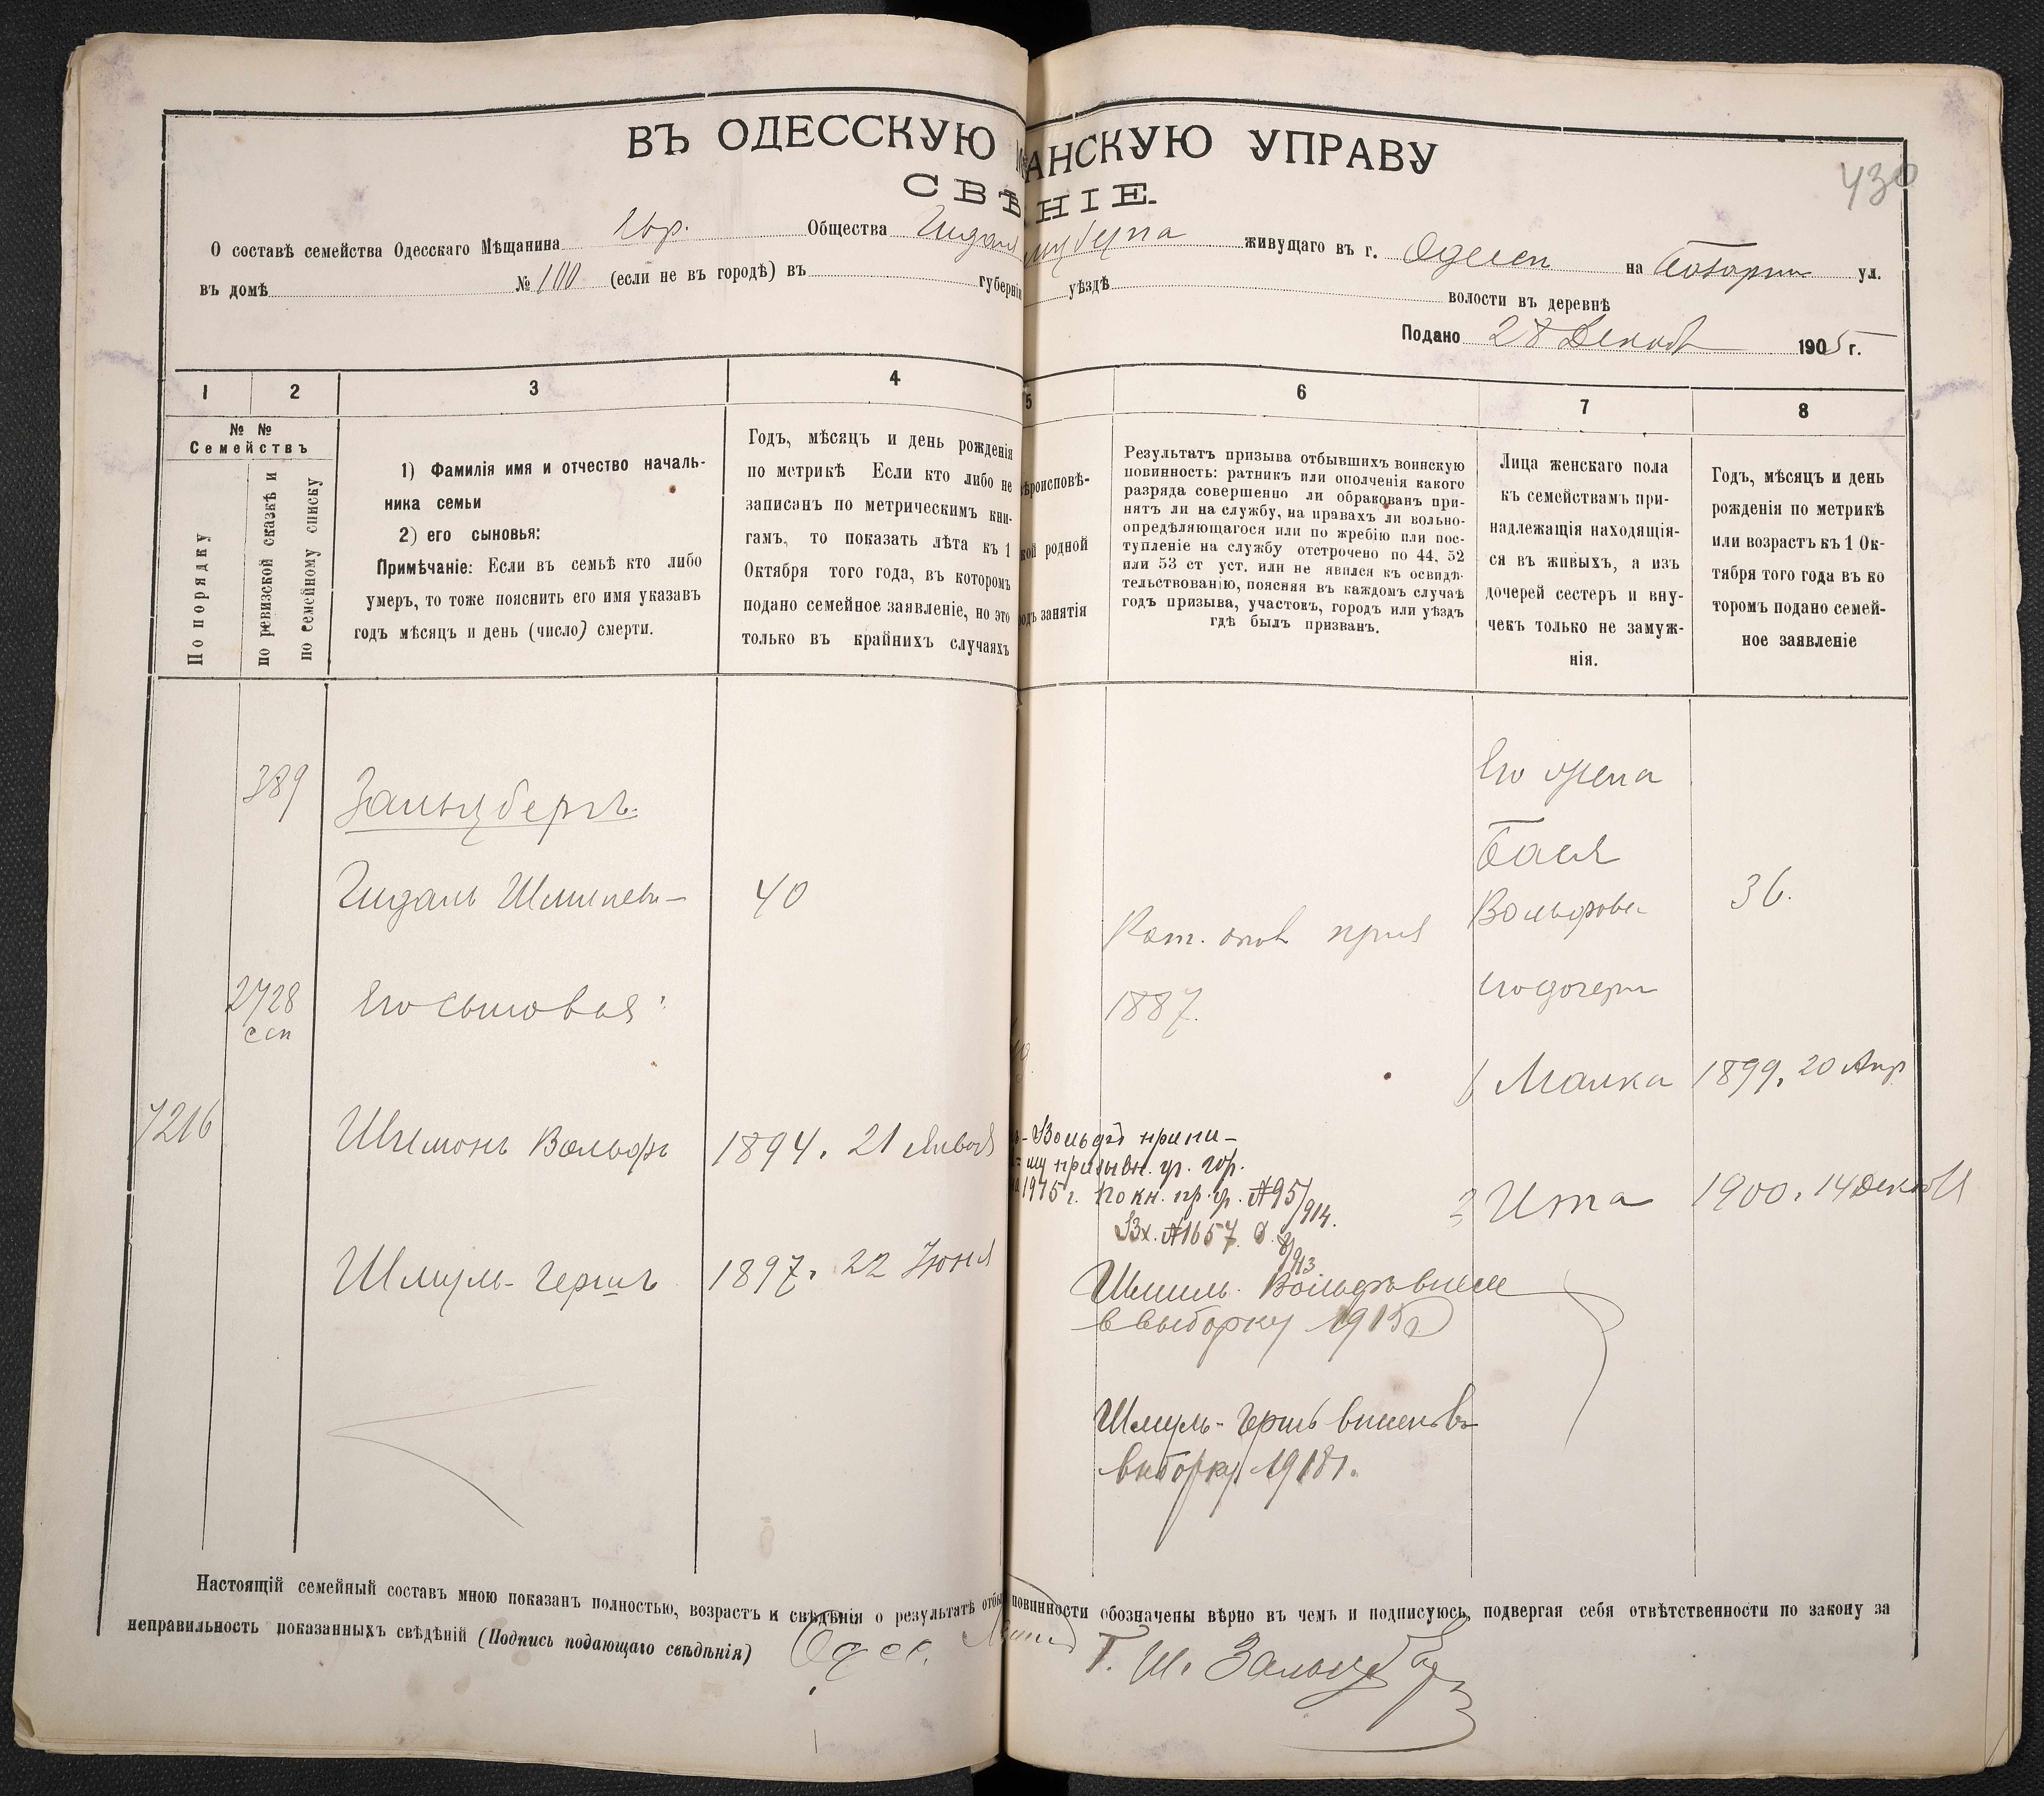 ВЪ ОДЕССКУЮ АНСКУЮ УПРАВУ
СВѢ НІЕ.
430
О составѣ семейства Одесскаго Мѣщанина Евр. Общества Гидаля живущаго въ г. Одессѣ на ул.
въ домѣ № (если не въ городѣ) въ губерніи уѣздѣ волости въ деревнѣ
Подано 28 Декаб 1905 г.
1 2 3 4 5 6 7 8
№ №
Семействъ
По порядку
по ревизской сказкѣ и
по семейному списку
1) Фамилія имя и отчество началь-
ника семьи
2) его сыновья:
Примѣчаніе: Если въ семьѣ кто либо
умеръ, то тоже пояснить его имя указавъ
годъ мѣсяцъ и день (число) смерти.
Годъ, мѣсяцъ и день рожденія
по метрикѣ Если кто либо не
записанъ по метрическимъ кни-
гамъ, то показать лѣта къ 1
Октября того года, въ которомъ
подано семейное заявленіе, но это
только въ крайнихъ случаяхъ
ѣроисповѣ-
кой родной
одъ занятія
Результатъ призыва отбывшихъ воинскую
повинность: ратникъ или ополченія какого
разряда совершенно ли обракованъ при-
нятъ ли на службу, на правахъ ли вольно-
опредѣляющагося или по жребію или пос-
тупленіе на службу отстрочено по 44, 52
или 53 ст уст. или не явился къ освидѣ-
тельствованію, поясняя въ каждомъ случаѣ
годъ призыва, участокъ, городъ или уѣздъ
гдѣ былъ призванъ.
Лица женскаго пола
къ семействамъ при-
надлежащія находящія-
ся въ живыхъ, а изъ
дочерей сестеръ и вну-
чекъ только не замуж-
нія.
Годъ, мѣсяцъ и день
рожденія по метрикѣ
или возрастъ къ 1 Ок-
тября того года въ ко
торомъ подано семей-
ное заявленіе
389 Зальцбергъ
Его жена
Бася
Гидаль 40
Вольфова 36.
Рат. опол
2728 Его сыновья: 1887. его дочери
ссп
1) Малка 1899. 20 Апр
7216 Шимонъ Вольфъ 1894. 21 Января
Вольфъ припи-
призывн. уч. гор.
1915 г. по кн. пр. уч. №95/914.
Вх. №1657. 913
2 Ита 1900. 14 Декаб
Шмуль-Гершъ 1897. 22 Іюня
Вольфъ внесе
в выборку 1915 г
Шмуль-Гершъ внесенъ въ
выборку 1918 г.
Настоящій семейный составъ мною показанъ полностью, возрастъ и свѣдѣнія о результатѣ отбы повинности обозначены вѣрно въ чемъ и подписуюсь, подвергая себя отвѣтственности по закону за
неправильность показанныхъ свѣдѣній (Подпись подающаго свѣдѣнія) Одес. Г. Ш. Зальцберг